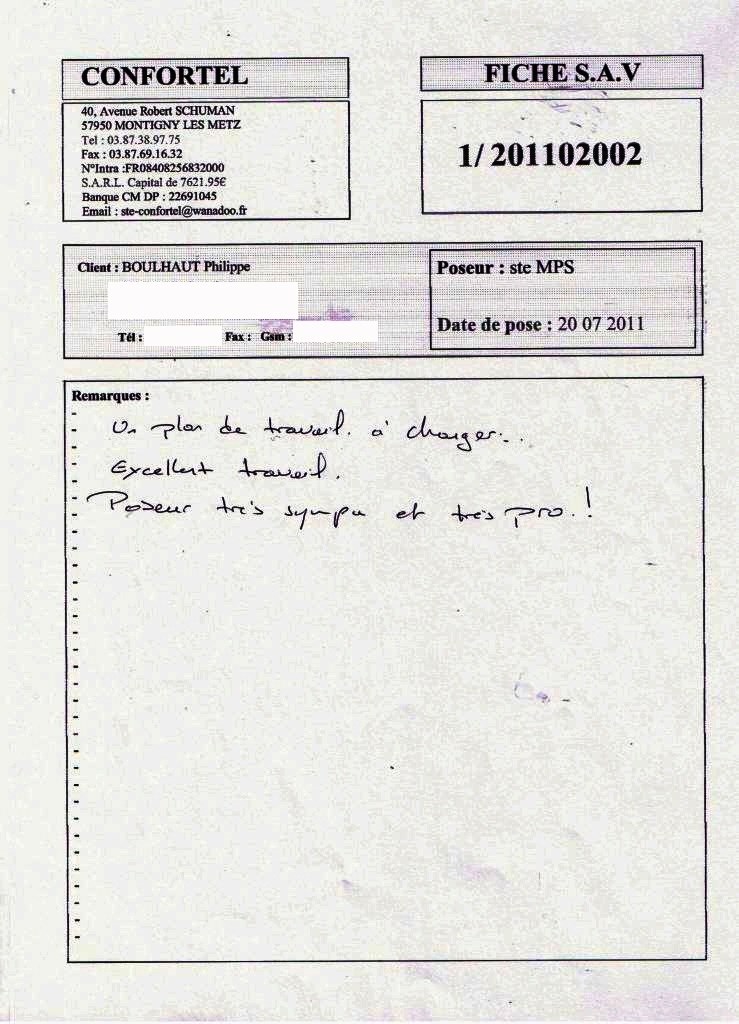 CONFORTEL
40, Avenue Robert SCHUMAN
57950 MONTIGNY LES METZ
Tel : 03.87.38.97.75
Fax : 03.87.69.16.32
N°Intra :FR08408256832000
S.A.R.L. Capital de 7621.95€
Banque CM DP : 22691045
Email : ste-confortel@wanadoo.fr
FICHE S.A.V
1/ 201102002
Client : BOULHAUT Philippe
Tél :
Fax : Gsm :
Poseur : ste MPS
Date de pose : 20 07 2011
Remarques :
Un plan de travail. à changer...
Excellent travail.
Poseur très sympa et très pro.!